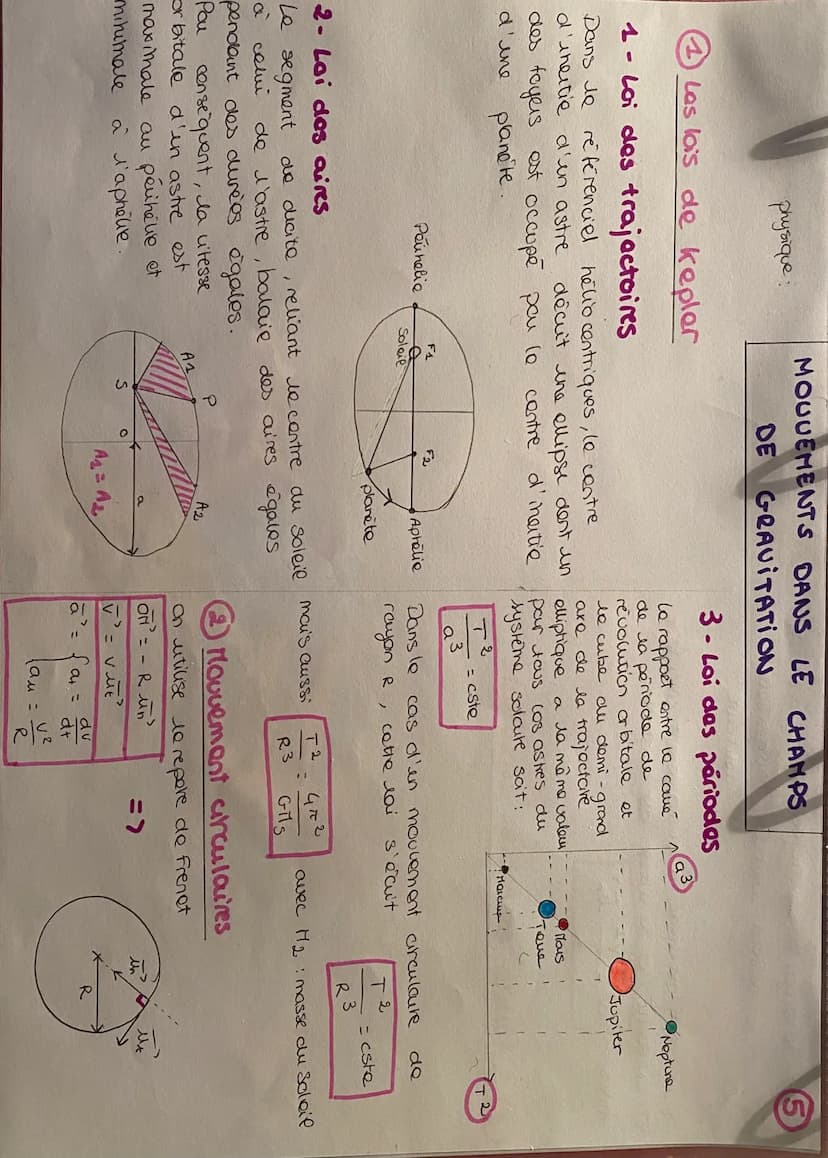 physique:
MOUVEMENTS DANS LE CHAMPS
DE GRAVITATION
5
1 Les lois de kepler
1 - Loi des trajectoires
Dans le référenciel hélio centriques, le centre
d'inertie d'un astre décrit une ellipse dont un
des foyers est occupé par le centre d'inertie
d'une planète.
Périhélie
F1
Soleil
F2
Aphélie
planète
2 - Loi des aires
Le segment de droite, reliant le centre du soleil
à celui de l'astre, balaie des aires égales
pendant des durées égales.
Par conséquent, la vitesse
orbitale d'un astre est
maximale au périhélie et
minimale à l'aphélie.
A1
P
A2
S
O
a
A1 = A2
3 - Loi des périodes
Le rapport entre le carré
de la période de
révolution orbitale et
le cube du demi-grand
axe de la trajectoire
elliptique a la même valeur
pour tous les astres du
système solaire soit:
T²/a³ = cste
a³
Neptune
Jupiter
Mars
Terre
Mercure
T²
Dans le cas d'un mouvement circulaire de
rayon R, cette loi s'écrit
T²/R³ = cste
mais aussi
T²/R³ = 4π²/GMs
avec M2 : masse du soleil
2 Mouvement circulaires
on utilise le repère de Frenet
OM→ = - R un→
v→ = v ut→
a→ = { at = dv/dt
an = v²/R
=>
un→
ut→
R